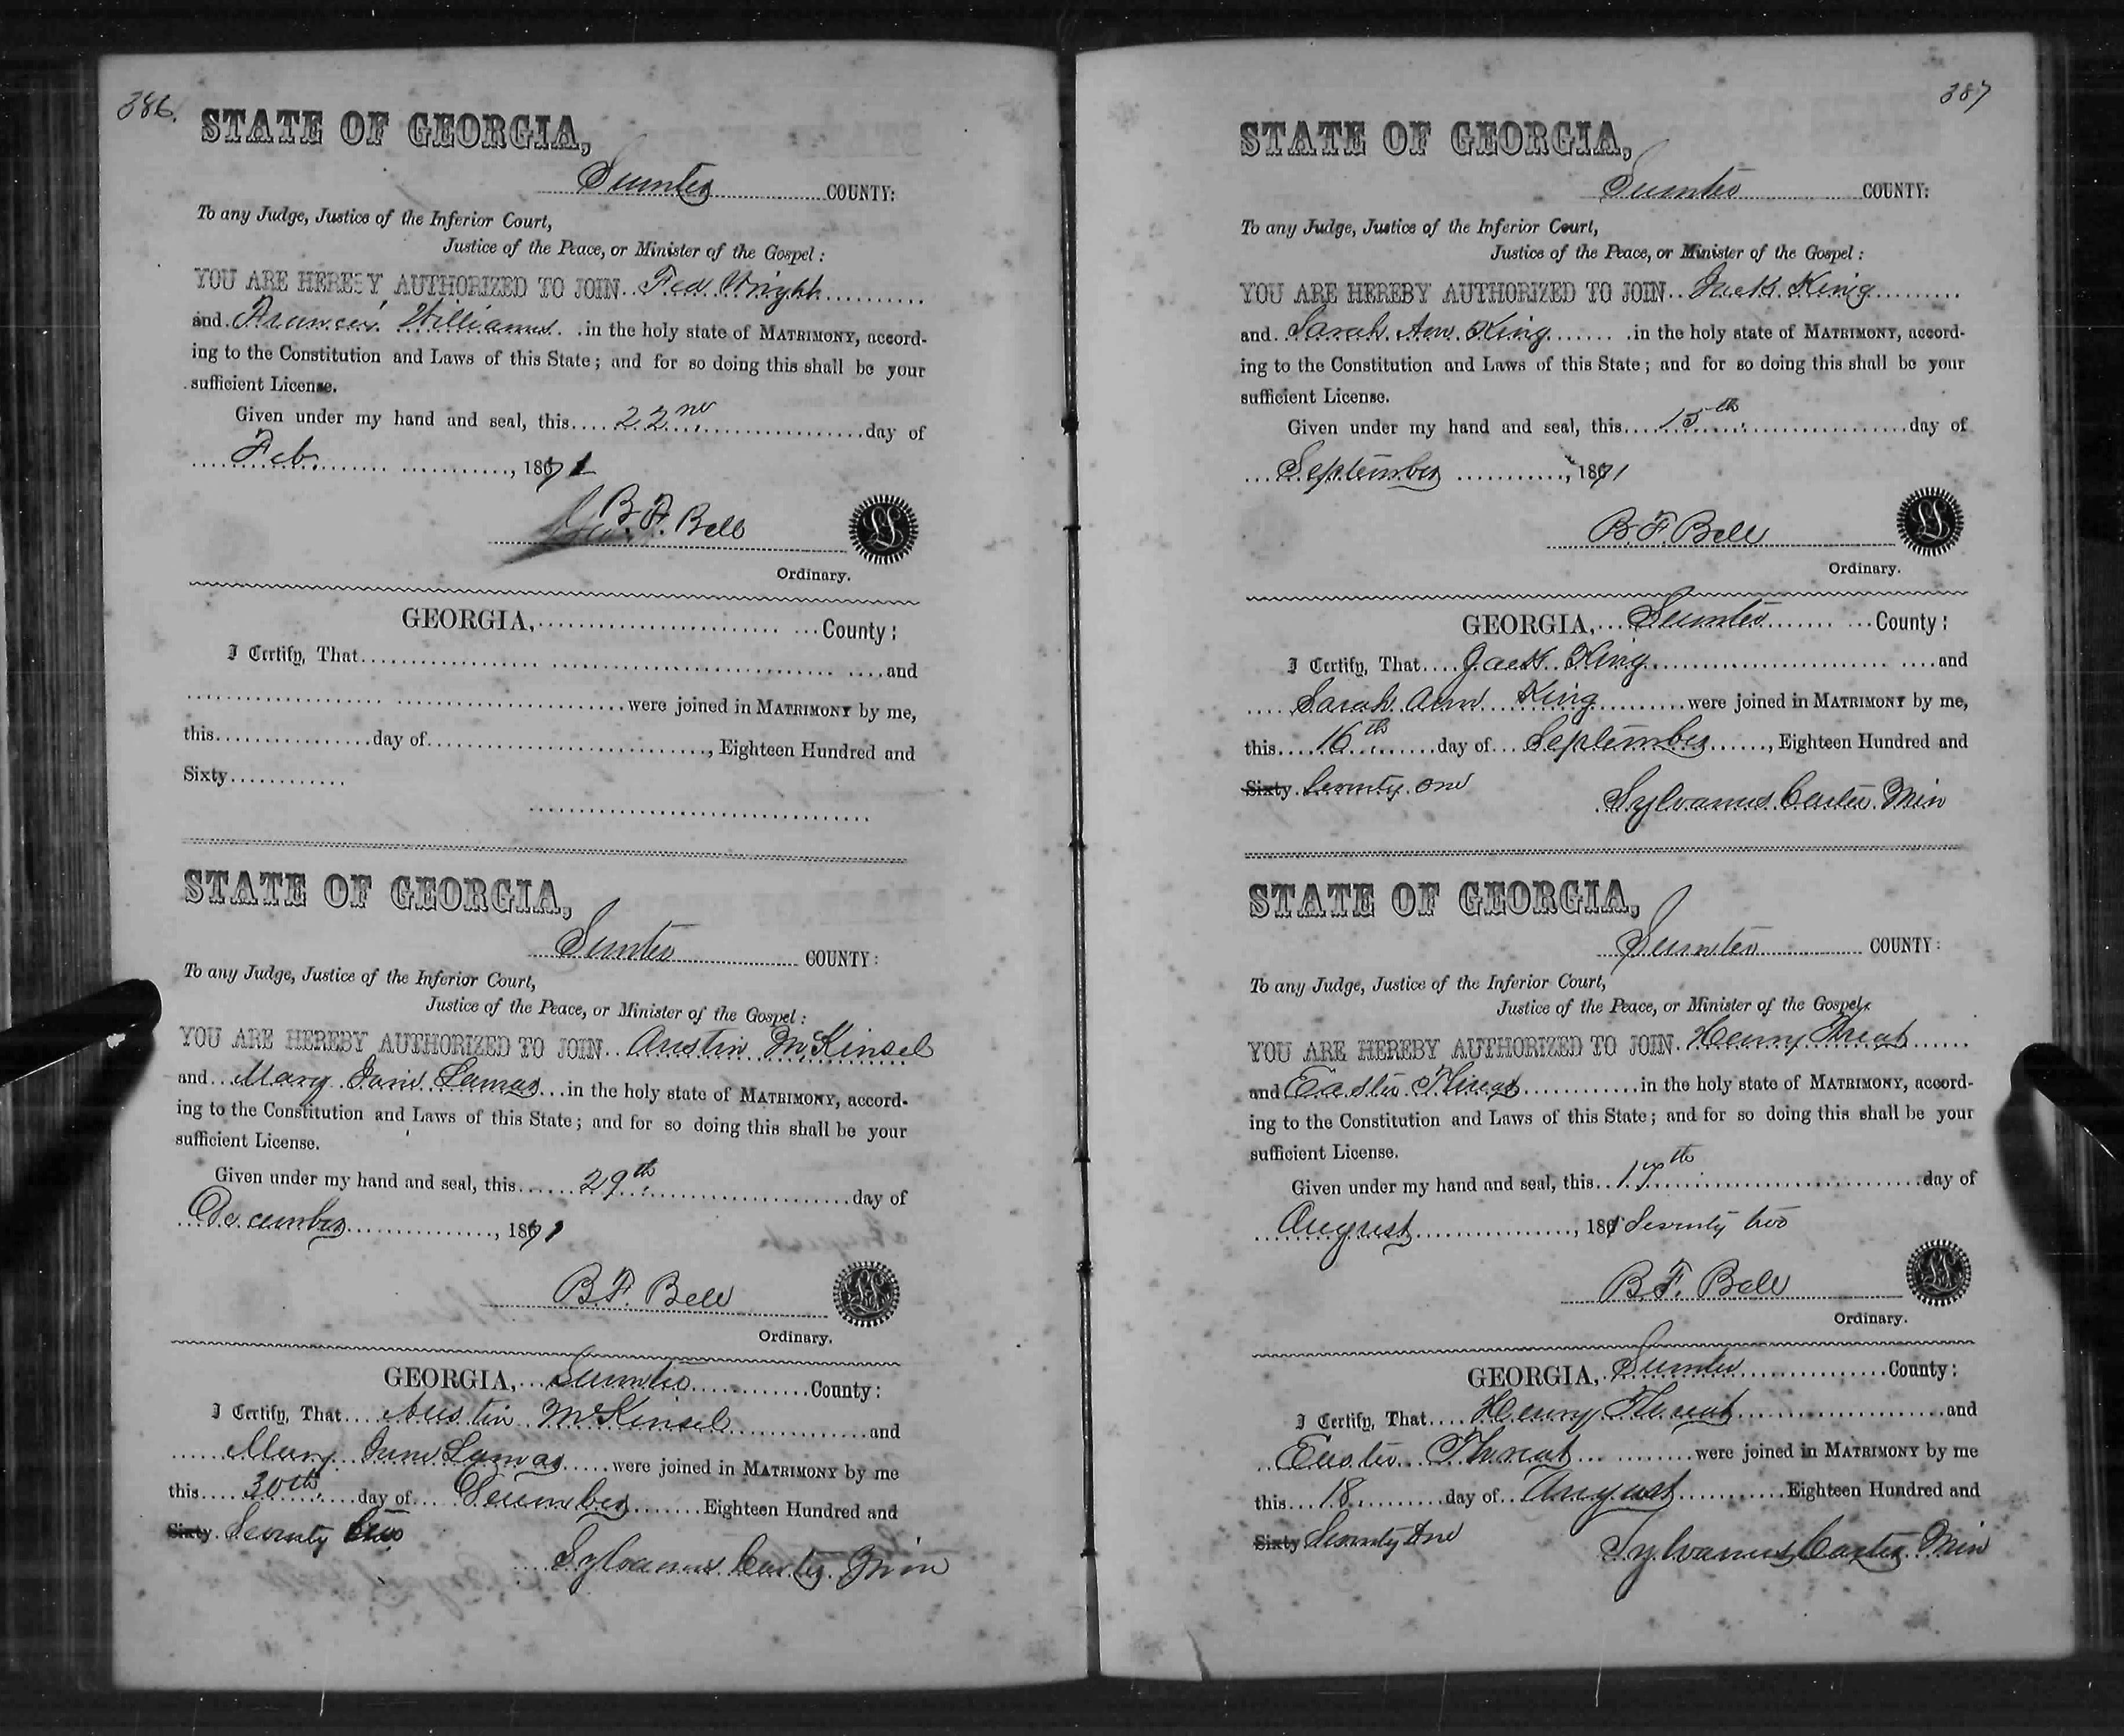 386.
STATE OF GEORGIA,
Sumter COUNTY:
To any Judge, Justice of the Inferior Court,
Justice of the Peace, or Minister of the Gospel:
YOU ARE HEREBY AUTHORIZED TO JOIN Fed Wright
and Frances Williams in the holy state of MATRIMONY, accord-
ing to the Constitution and Laws of this State; and for so doing this shall be your
sufficient License.
Given under my hand and seal, this 22nd day of
Feb. , 1871
B. F. Bell
LS
Ordinary.
GEORGIA, County:
I Certify, That and
were joined in MATRIMONY by me,
this day of , Eighteen Hundred and
Sixty
STATE OF GEORGIA,
Sumter COUNTY:
To any Judge, Justice of the Inferior Court,
Justice of the Peace, or Minister of the Gospel:
YOU ARE HEREBY AUTHORIZED TO JOIN Austin McKinsel
and Mary Jane Lamar in the holy state of MATRIMONY, accord-
ing to the Constitution and Laws of this State; and for so doing this shall be your
sufficient License.
Given under my hand and seal, this 29th day of
December , 1871
B. F. Bell
LS
Ordinary.
GEORGIA, Sumter County:
I Certify, That Austin McKinsel and
Mary Jane Lamar were joined in MATRIMONY by me
this 30th day of December Eighteen Hundred and
Sixty Seventy
Sylvanus Carter Min
387
STATE OF GEORGIA,
Sumter COUNTY:
To any Judge, Justice of the Inferior Court,
Justice of the Peace, or Minister of the Gospel:
YOU ARE HEREBY AUTHORIZED TO JOIN Jack King
and Sarah Ann King in the holy state of MATRIMONY, accord-
ing to the Constitution and Laws of this State; and for so doing this shall be your
sufficient License.
Given under my hand and seal, this 15th day of
September , 1871
B. F. Bell
LS
Ordinary.
GEORGIA, Sumter County:
I Certify, That Jack King and
Sarah Ann King were joined in MATRIMONY by me,
this 16th day of September , Eighteen Hundred and
Sixty Seventy one
Sylvanus Carter Min
STATE OF GEORGIA,
Sumter COUNTY:
To any Judge, Justice of the Inferior Court,
Justice of the Peace, or Minister of the Gospel:
YOU ARE HEREBY AUTHORIZED TO JOIN Henry Threat
and Easter Threat in the holy state of MATRIMONY, accord-
ing to the Constitution and Laws of this State; and for so doing this shall be your
sufficient License.
Given under my hand and seal, this 17th day of
August , 186 Seventy two
B. F. Bell
LS
Ordinary.
GEORGIA, Sumter County:
I Certify, That Henry Threat and
Easter Threat were joined in MATRIMONY by me
this 18 day of August Eighteen Hundred and
Sixty Seventy
Sylvanus Carter Min